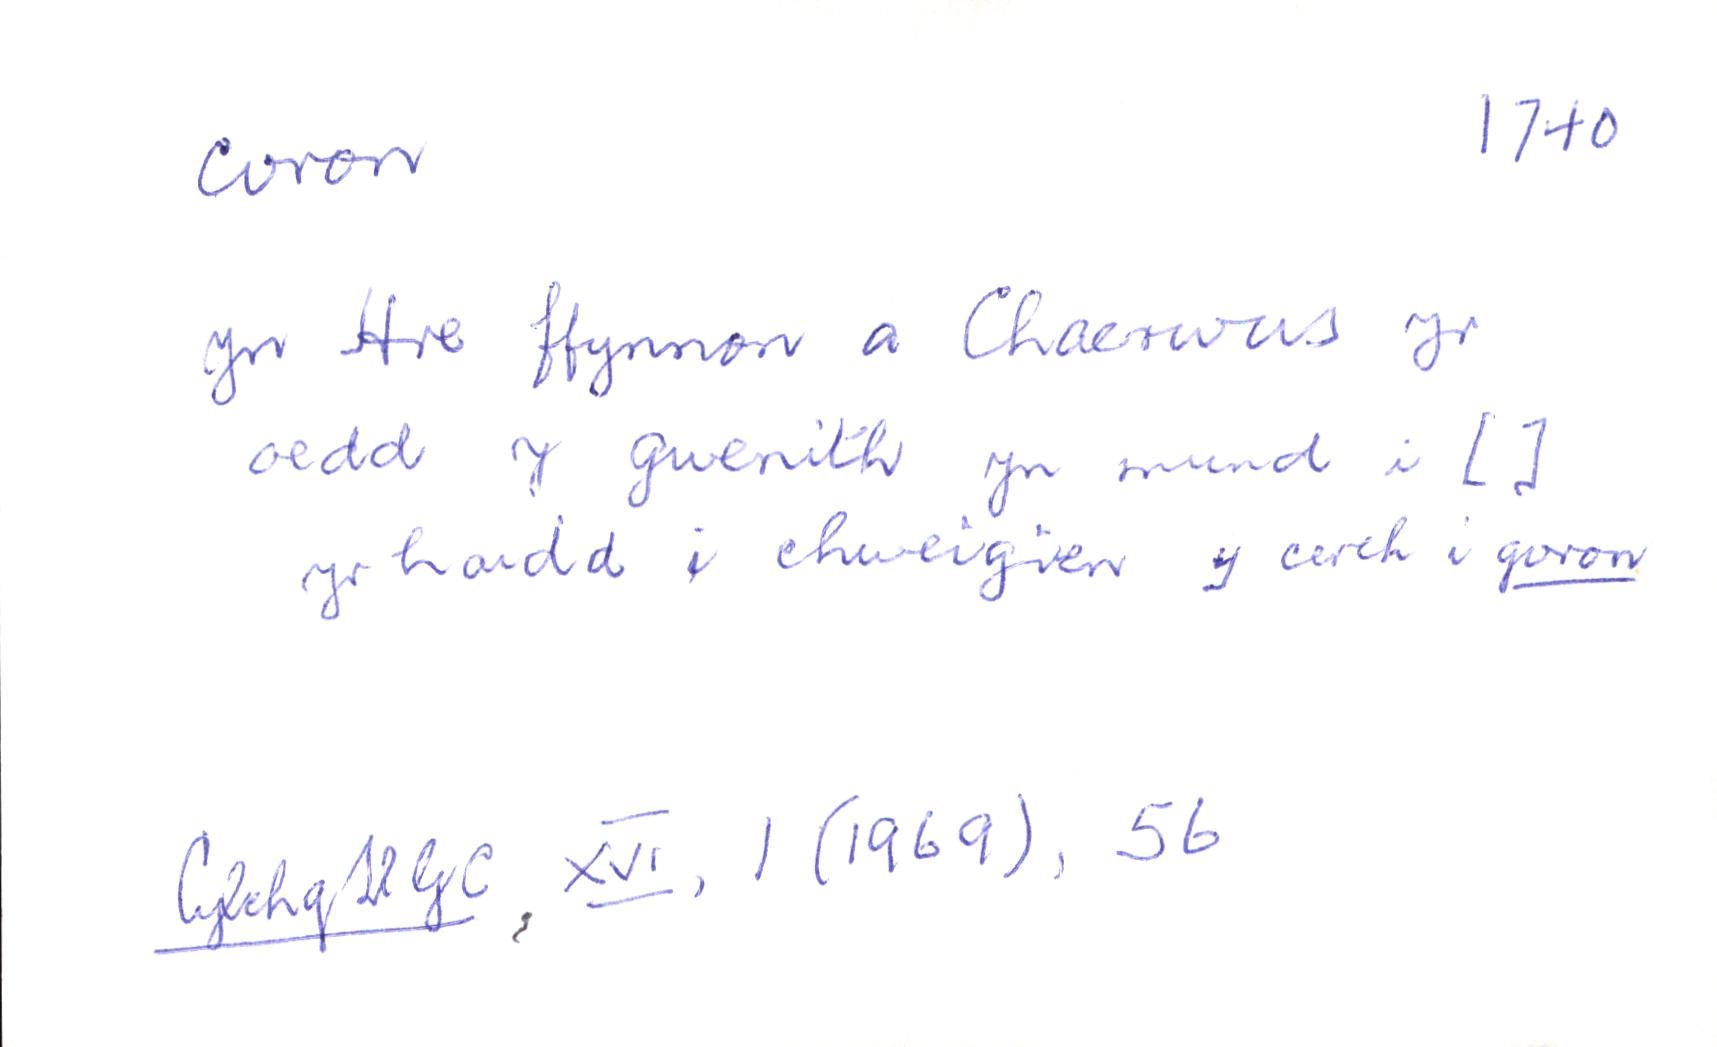 coron 1740
yn ttre ffynnon a Chaerwus yr
oedd y gwenith yn mund i [ ]
yr haidd i chweigien y cerch i goron
CylchgLlGC, XVI, 1 (1969), 56